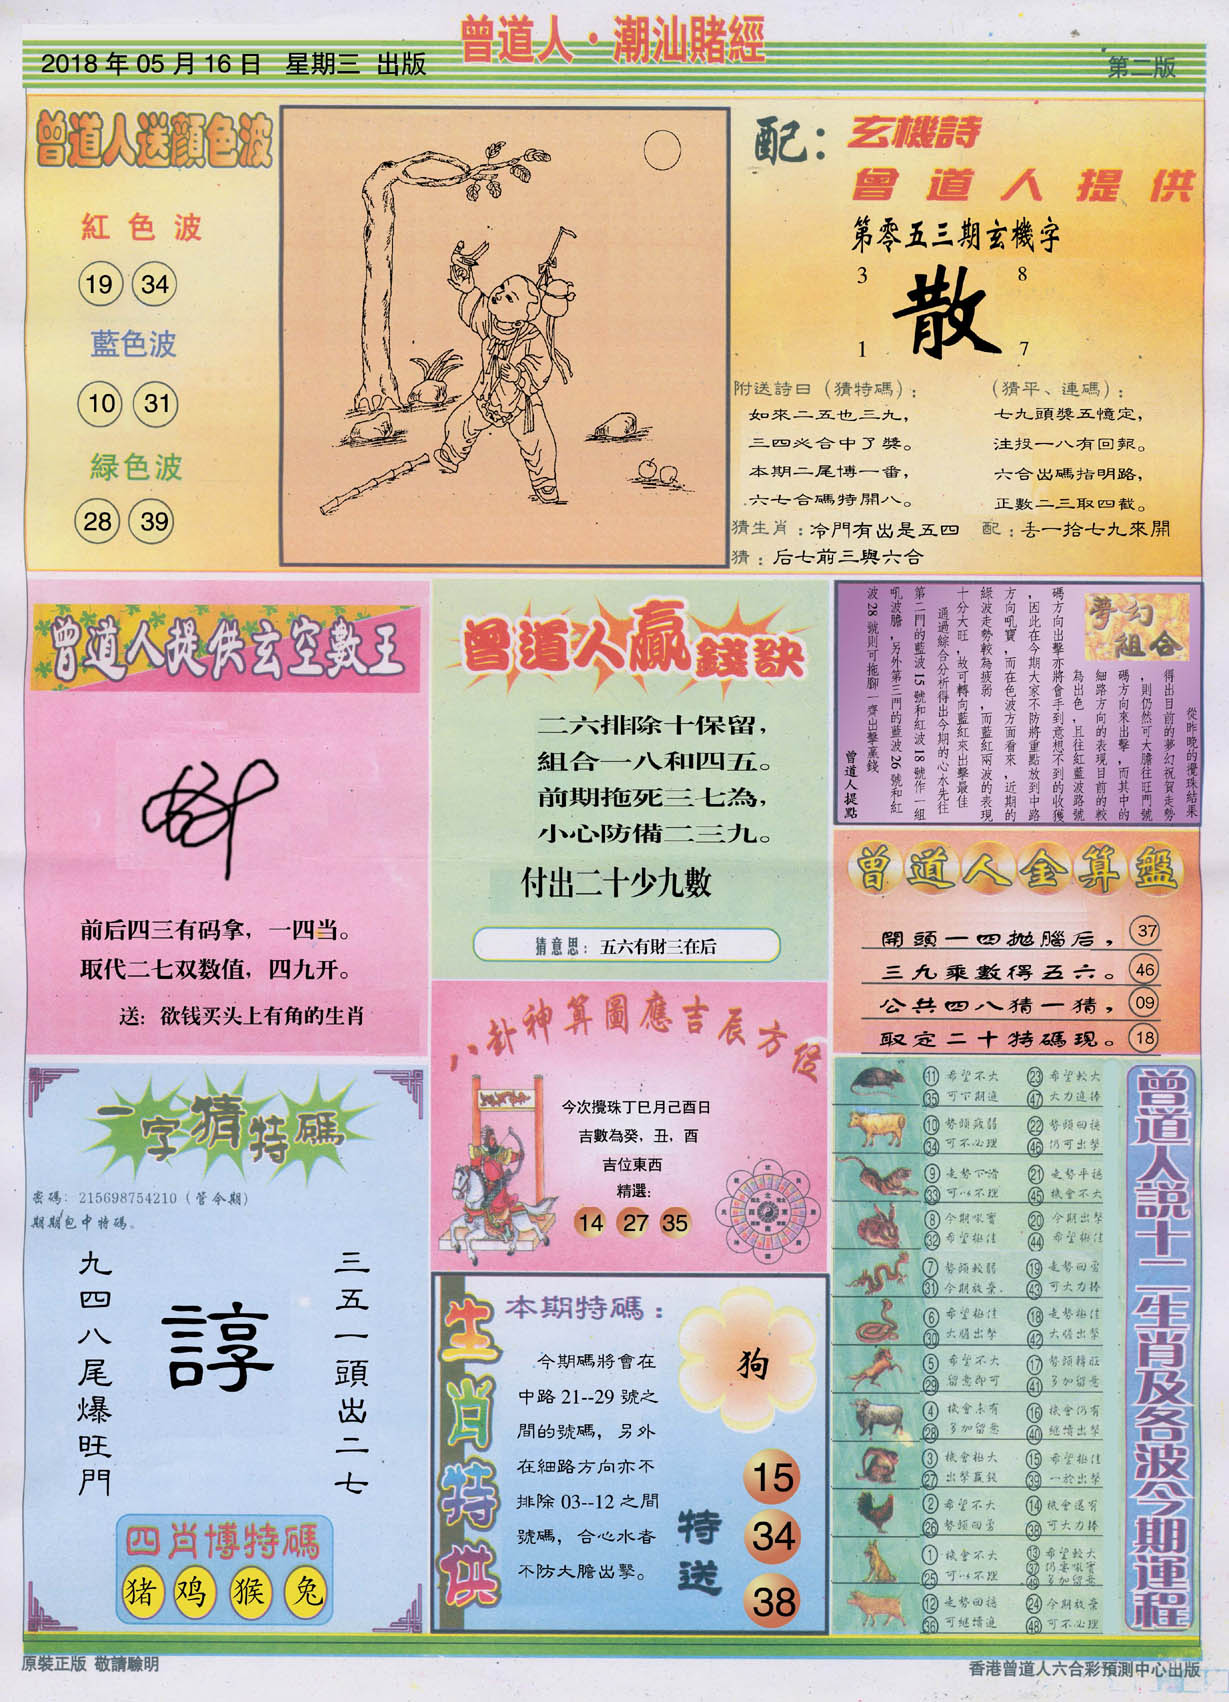 曾道人·潮汕賭經
2018年05月16日 星期三 出版
第二版
曾道人送顏色波
紅色波
19 34
藍色波
10 31
緑色波
28 39
配：玄機詩
曾道人提供
第零五三期玄機字
3 8
散
1 7
附送詩日（猜特碼）：
如來二五也三九，
三四必合中了獎。
本期二尾博一番，
六七合碼特開八。
（猜平、連碼）：
七九頭獎五憶定，
注投一八有回報。
六合出碼指明路，
正數二三取四截。
猜生肖：冷門有出是五四
配：丢一拾七九來開
猜：后七前三與六合
曾道人提供玄空數王
前后四三有码拿，一四当。
取代二七双数值，四九开。
送：欲钱买头上有角的生肖
曾道人贏錢訣
二六排除十保留，
組合一八和四五。
前期拖死三七為，
小心防備二三九。
付出二十少九數
猜意思：五六有財三在后
夢幻
組合
從昨晚的攪珠結果
得出目前的夢幻祝賀走勢
，則仍然可大膽往旺門號
碼方向來出擊，而其中的
細路方向的表現目前的較
為出色，且往紅藍波路號
碼方向出擊亦將會手到意想不到的收獲
，因此在今期大家不防將重點放到中路
方向吼寶，而在色波方面看來，近期的
綠波走勢較為疲弱，而藍紅兩波的表現
十分大旺，故可轉向藍紅來出擊最佳
通過綜合分析得出今期的心水先往
第二門的藍波15號和紅波18號作一組
吼波膽，另外第三門的藍波26號和紅
波28號則可拖腳一齊出擊贏錢
曾道人提點
曾道人金算盤
開頭一四拋腦后， 37
三九乘數得五六。 46
公共四八猜一猜， 09
取定二十特碼現。 18
八卦神算圖應吉辰方位
今次攪珠丁巳月己酉日
吉數為癸，丑，酉
吉位東西
精選：
14 27 35
一字猜特碼
密碼：215698754210（管今期）
期期包中特碼。
三五一頭出二七
諄
九四八尾爆旺門
四肖博特碼
猪 鸡 猴 兔
生肖特供
本期特碼：
今期碼將會在
中路21--29號之
間的號碼，另外
在細路方向亦不
排除03--12之間
號碼，合心水者
不防大膽出擊。
狗
特送
15
34
38
曾道人說十二生肖及各波今期運程
11 希望不大 23 希望較大
35 可下期追 47 大力追捧
10 勢頭疲弱 22 勢頭回穩
34 可不必理 46 仍可出擊
9 走勢下滑 21 走勢平穩
33 可以不理 45 機會不大
8 今期吼寶 20 今期出擊
32 希望極佳 44 希望極佳
7 勢頭較弱 19 走勢回勇
31 今期放棄 43 可大力捧
6 希望極佳 18 走勢極佳
30 大膽出擊 42 大膽出擊
5 希望不大 17 勢頭轉旺
29 留意即可 41 多加留意
4 機會未有 16 機會仍有
28 多加留意 40 繼續出擊
3 機會極大 15 希望極佳
27 出擊贏錢 39 一於出擊
2 希望不大 14 機會還有
26 勢頭回勇 38 可大力捧
1 機會不大 13 希望較大
25 可以不理 37 仍要吼實
49 多加留意
12 走勢回穩 24 今期放棄
36 可繼續追 48 可不必理
原裝正版 敬請驗明
香港曾道人六合彩預測中心出版